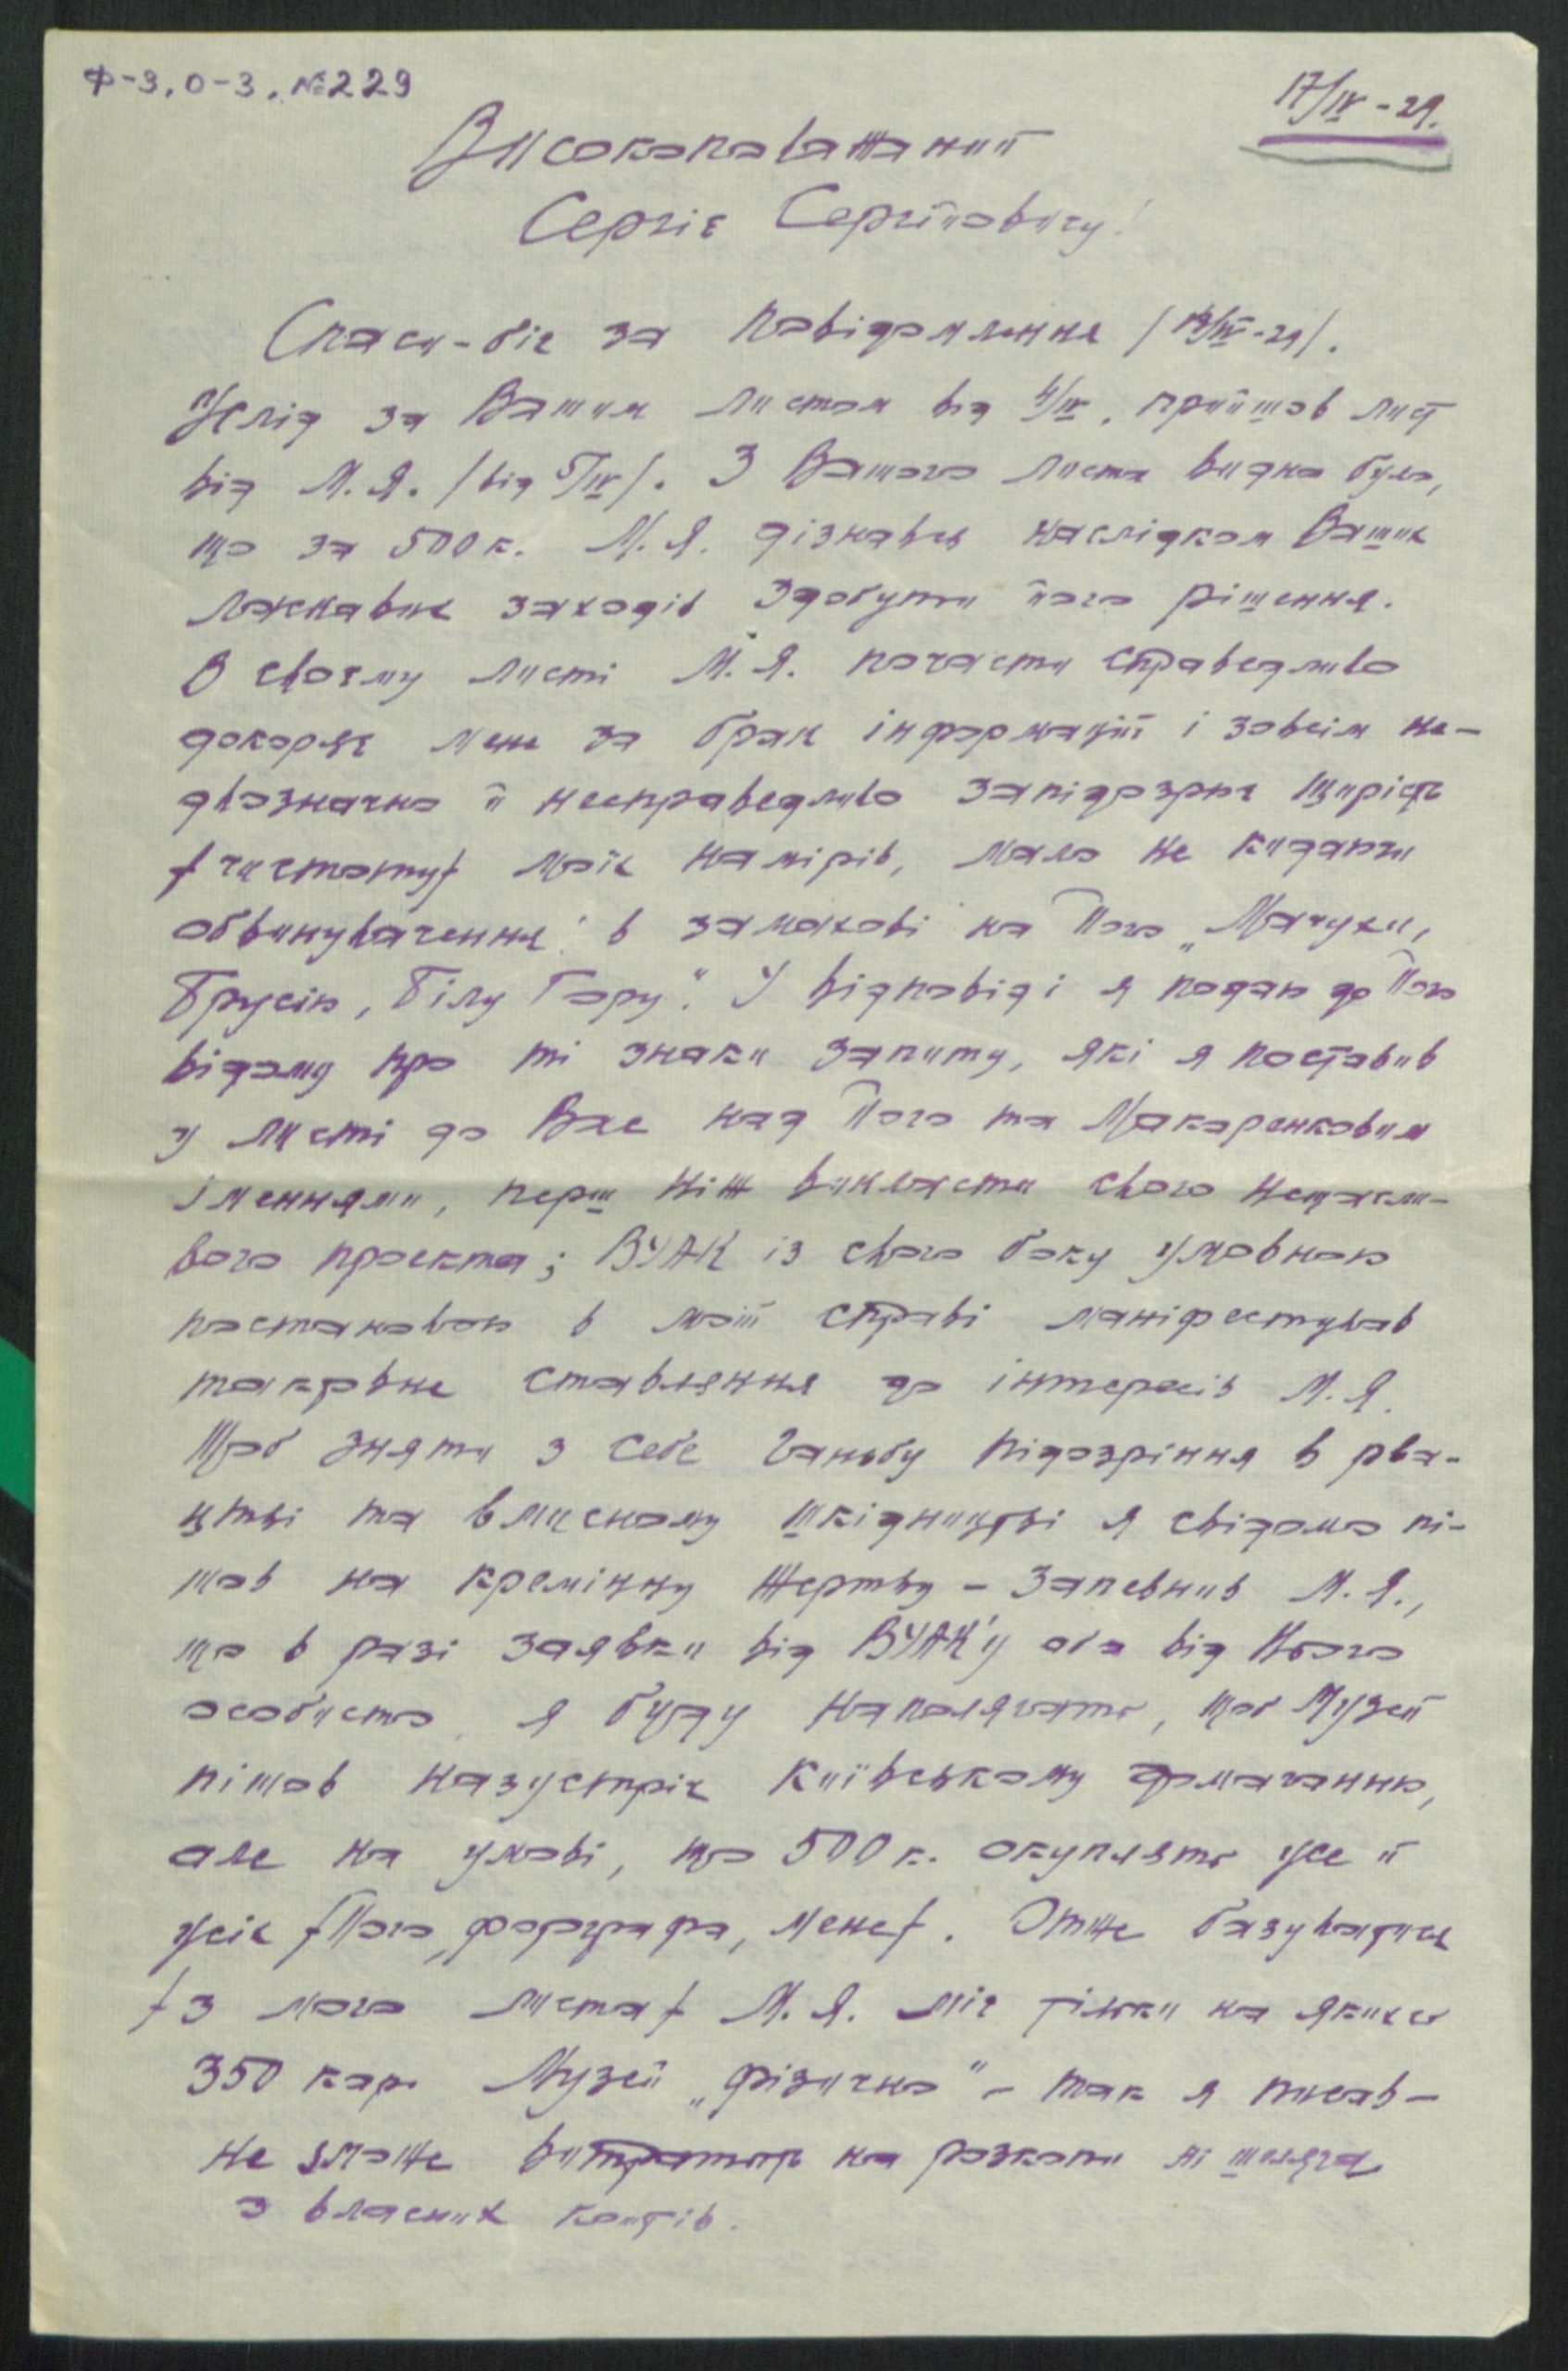 Ф-3, О-3, №229
17/IV-29.
Високоповажаний
Сергіє Сергійовичу!
Спаси-біг за повідомлення /13/IV-29/.
Услід за Вашим листом від 4/IV. прийшов лист
від М.Я. /від 5/IV/. З Вашого листа видно було,
що за 500 к. М.Я. дізнавсь наслідком Ваших
ласкавих заходів здобути його рішення.
В своєму листі М.Я. почасти справедливо
докоряє мене за брак інформації і зовсім не-
двозначно й несправедливо запідозрює щирість
/чистоту/ моїх намірів, мало не кидаючи
обвинувачення в замахові на Його „Мачухи,
Брусію, Білу Гору". У відповіді я подаю до Його
відому про ті знаки запиту, які я поставив
у листі до Вас над Його та Макаренковим
іменнями, перш ніж викласти свого нещасли-
вого проекта; ВУАК із свого боку умовною
постановою в моїй справі маніфестував
такровне ставлення до інтересів М.Я.
Щоб зняти з себе ганьбу підозріння в рва-
цтві та вмисному шкідництві я свідомо пі-
шов на кремінну жертву – запевнив М.Я.,
що в разі заявки від ВУАК'у або від Нього
особисто я буду наполягать, щоб Музей
пішов назустріч київському домаганню,
але на умові, що 500 к. окуплять усе й
усіх /Його, фотографа, мене/. Отже базуватись
/з мого листа/ М.Я. міг тільки на якихсь
350 кар. Музей „фізично" – так я писав –
не зможе витратить на розкопи ні шеляга
з власних коштів.